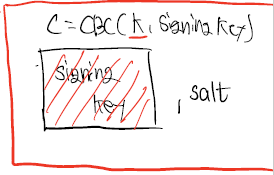 C = CBC(k, Signing key)
signing
key
, salt